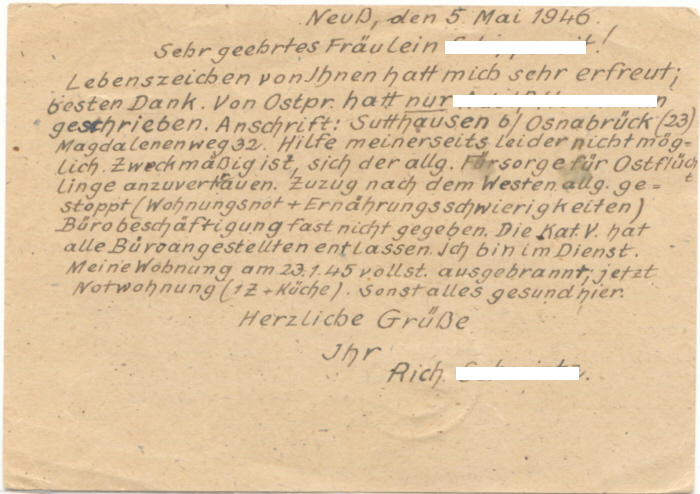 Neuß, den 5. Mai 1946.
Sehr geehrtes Fräulein !
Lebenszeichen von Ihnen hatt mich sehr erfreut;
besten Dank. Von Ostpr. hatt nur
geschrieben. Anschrift: Sutthausen b/ Osnabrück (23)
Magdalenenweg 32. Hilfe meinerseits leider nicht mög-
lich. Zweckmäßig ist, sich der allg. Fürsorge für Ostflücht
linge anzuvertauen. Zuzug nach dem Westen allg. ge=
stoppt (Wohnungsnot + Ernährungsschwierigkeiten)
Bürobeschäftigung fast nicht gegeben. Die Kat. V. hat
alle Büroangestellten entlassen. Ich bin im Dienst.
Meine Wohnung am 23.1.45 vollst. ausgebrannt; jetzt
Notwohnung (1 Z + Küche). Sonst alles gesund hier.
Herzliche Grüße
Ihr
Rich.